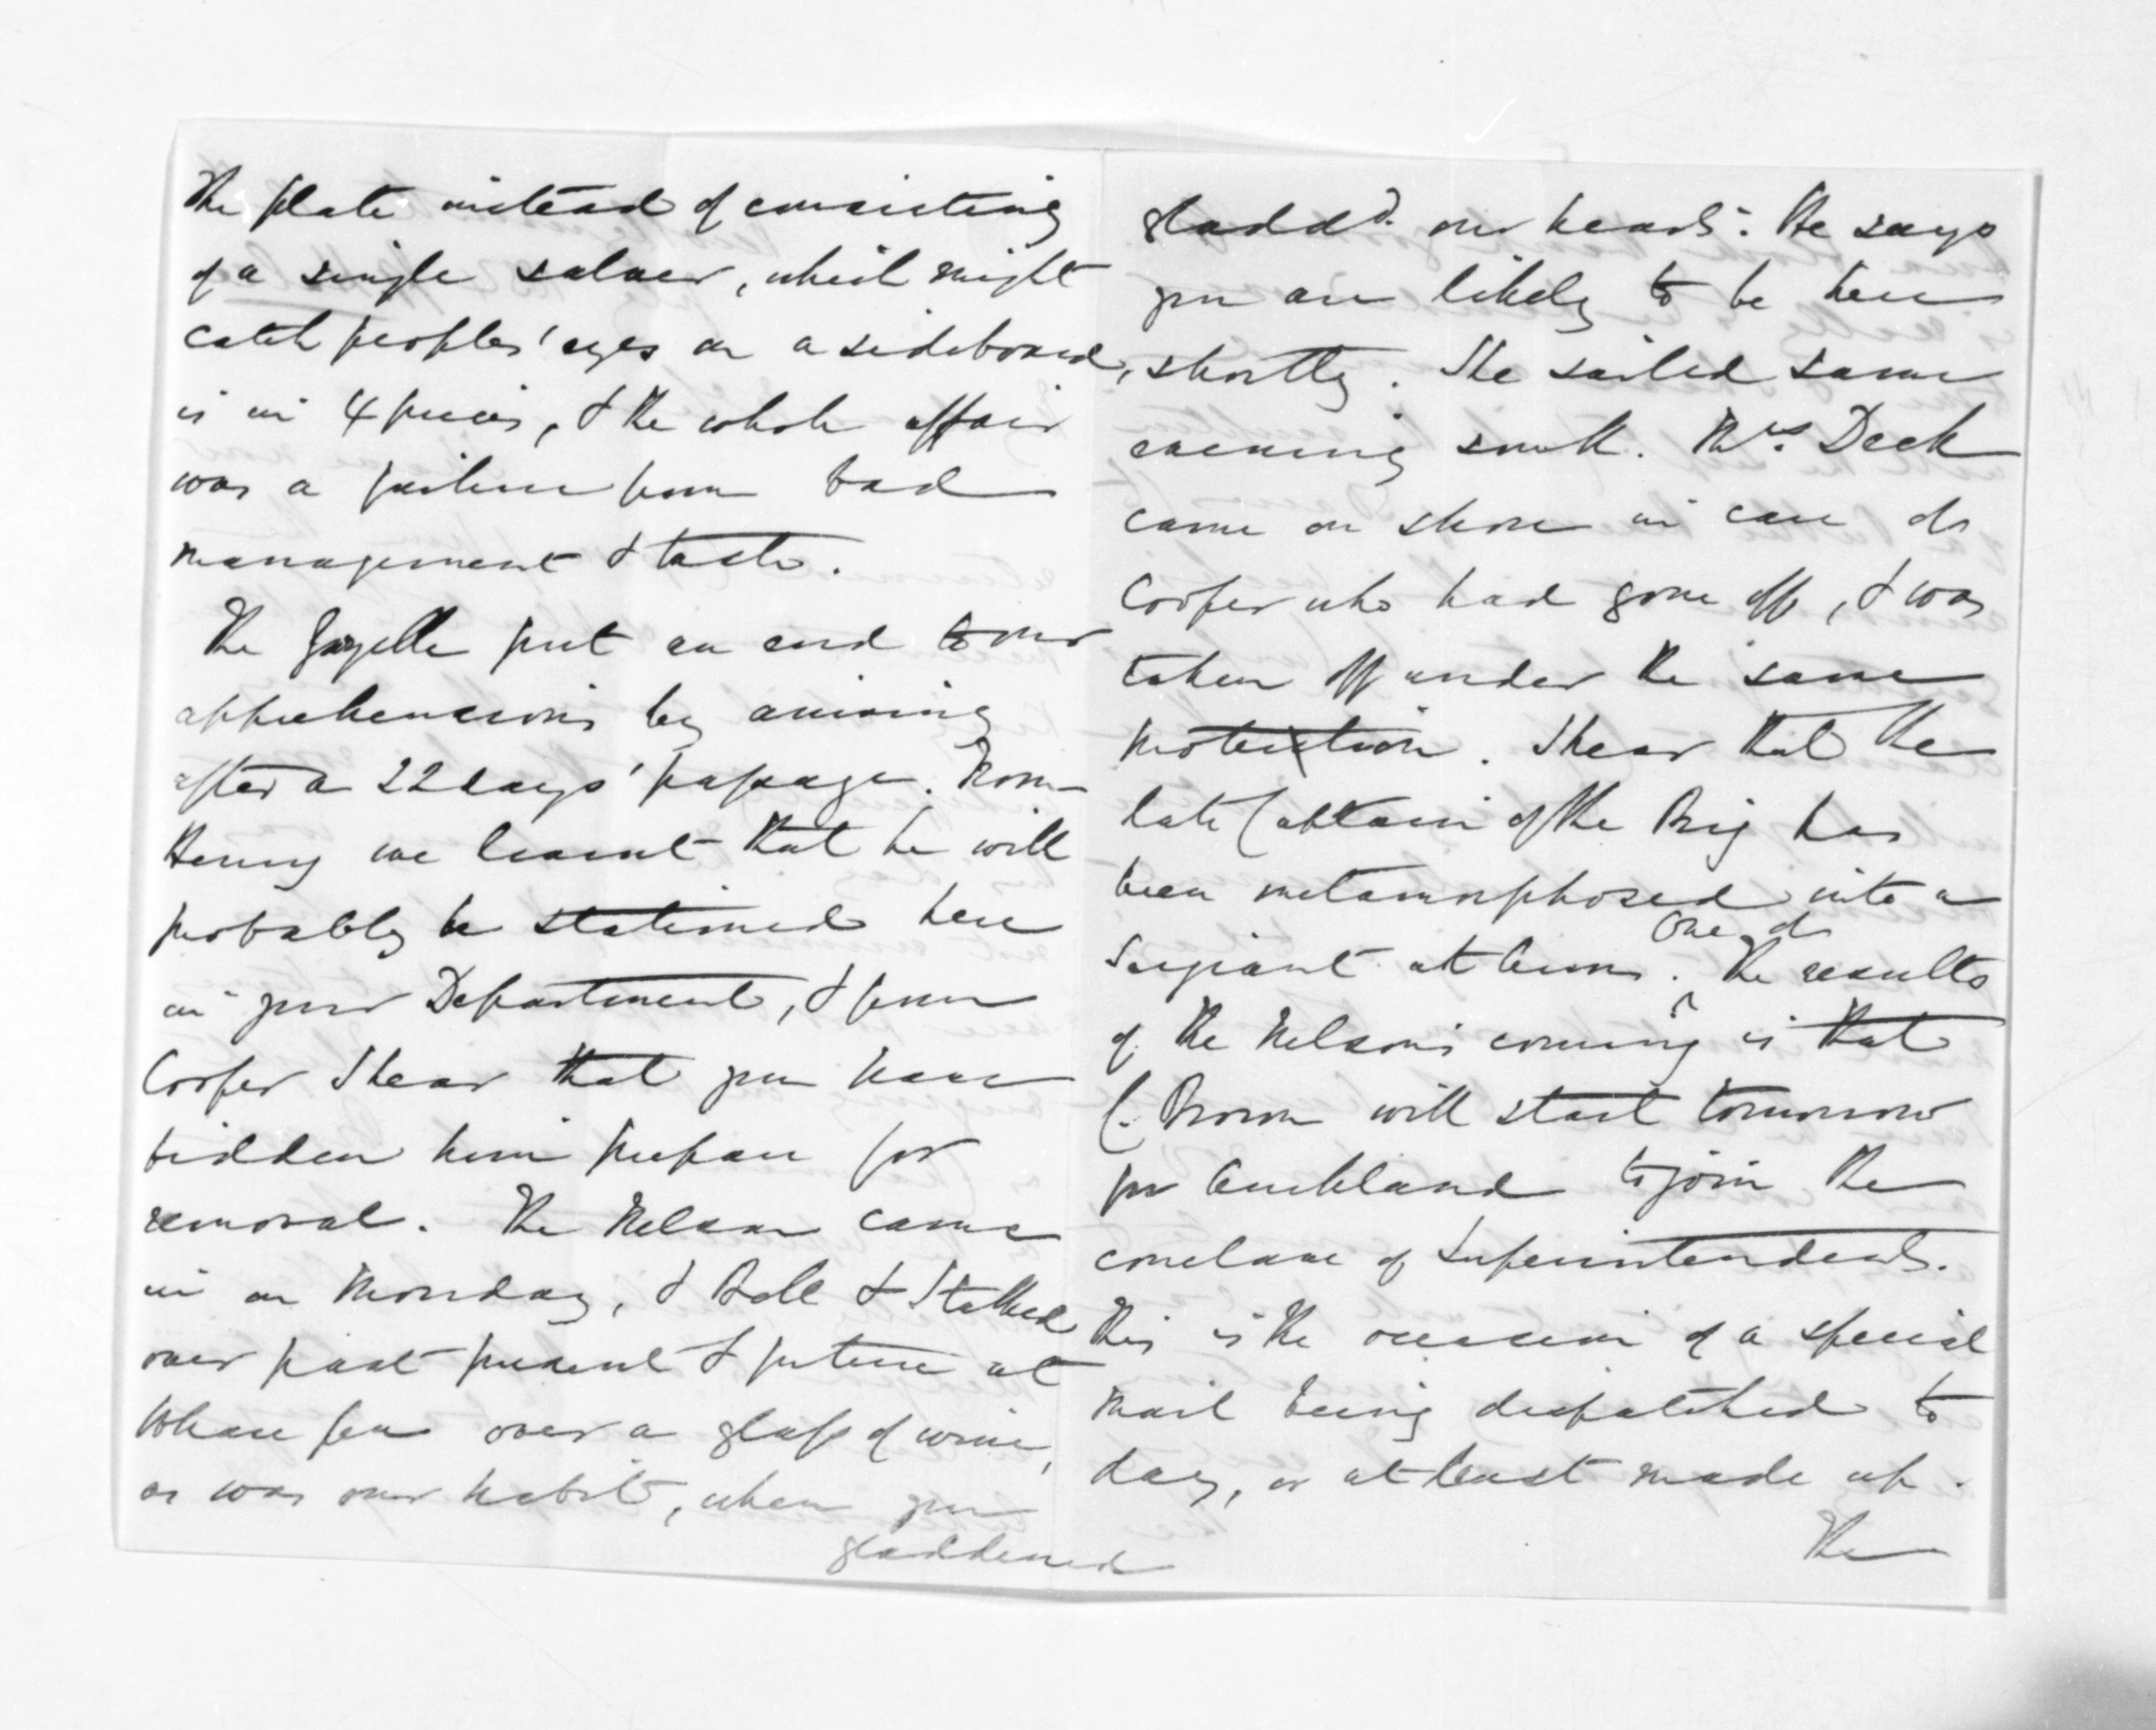 The plate instead of consisting
of a single salver, which might
catch peoples' eyes on a sideboard,
is in 4 pieces, & the whole affair
was a failure from bad
management & taste.
The Gazelle put an end to our
apprehensions by arriving
after a 22 days' passage. From
Henry we learnt that he will
probably be stationed here
in your Department, & from
Cooper I hear that you have
bidden him prepare for
removal. The Nelson came
in on Monday, & Bell & I talked
over past present & future at
Whare pea over a glass of wine,
as was our habit, when you
gladdened
gladdd. our hearts. He says
you are likely to be here
shortly. She sailed same
evening south. Mrs. Deck
came on shore in care of
Cooper who had gone off, & was
taken off under the same
protection. I hear that the
late Captain of the Brig has
been metamorphosed into a
Sergeant at Arms. One of the results
of the Nelson's coming is that
C. Brown will start tomorrow
for Auckland to join the
conclave of Superintendents.
This is the occasion of a special
mail being despatched to
day, or at least made up.
The